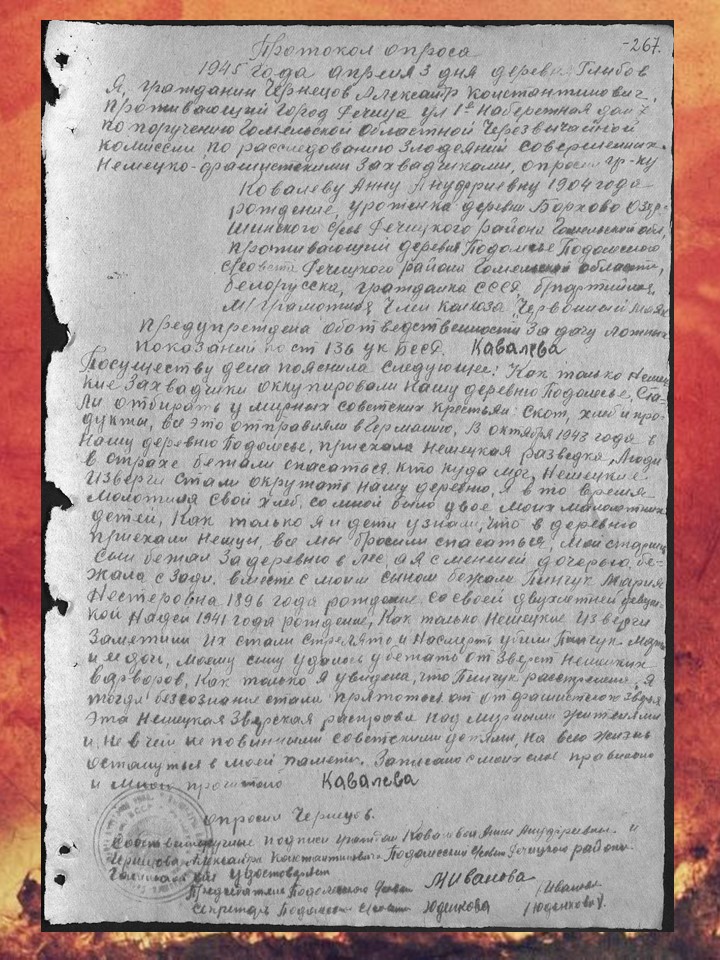 -267.
Протокол опроса
1945 года апреля 3 дня деревня Глыбов
Я, гражданин Чернецов Александр Константинович,
проживающий город Речица ул 1я Набережная дом 7
по поручению Гомельской Областной Черезвычайной
комиссии по расследованию Злодеяний совершенных
Немецко-фашистскими Захватчиками, опросил гр-ку
Ковалеву Анну Ануфриевну 1904 года
рождение, уроженка деревни Борхово Озер-
щинского с/сов Речицкого района Гомельской обл,
проживающий деревня Подолесье Подолеского
с/совета Речицкого района Гомельской области,
белорусска, гражданка СССР, б/партийная,
м/грамотная, Член колхоза "Червонный Маяк
предупреждена об ответственности За дачу ложных
показаний по ст 136 ук БССР. Кавалева
По существу дела пояснила следующее: Как только немец-
кие Захватчики оккупировали нашу деревню Подолесье, ста-
ли отбирать у мирных советских крестьян: Скот, хлеб и про-
дукты, все это отправляли в Германию, В октябре 1943 года в
нашу деревню Подолесье, приехала немецкая разведка, Люди
в страхе бежали спасаться, кто куда мог, Немецкие
Изверги стали окружать нашу деревню, я в то время
молотила свой хлеб, со мной было двое моих малолетних
детей, Как только я и дети узнали, что в деревню
приехали немцы, все мы бросили спасаться, Мой старший
сын бежал За деревню в лес, а я с меншей дочерью бе-
жала с Зади. вместе с моим сыном бежала Пинчук Мария
Нестеровна 1896 года рождение со своей двухлетней девуш-
кой Надей 1941 года рождение, Как только Немецкие Изверги
Заметили Их стали стрелять и насмерть убили Пинчук Мать
и ея дочь, Моему сыну удалось убежать от Зверст Немецких
варваров, Как только я увидела, что Пинчук расстреляли, я
тогда без сознание стала прятаться от фашистского Зверья
Эта Немецкая Зверская расправа над мирными жителями
и не в чем не повинными советскими детями, на всю жизнь
остануться в моей памяти. Записано с моих слов правильно
и мною прочитано Кавалева
опросил Чернецов.
Собственоручные подписи граждан Ковалевой Анны Ануфриевны и
Чернецова Александра Константиновича Подолесский с/совет Речицкого района
Гомельской обл удостоверяет
Председатель Подолеского с/совета МИванова /Иванова
Секретарь Подолеского с/совета Юденкова /Юденкова/.